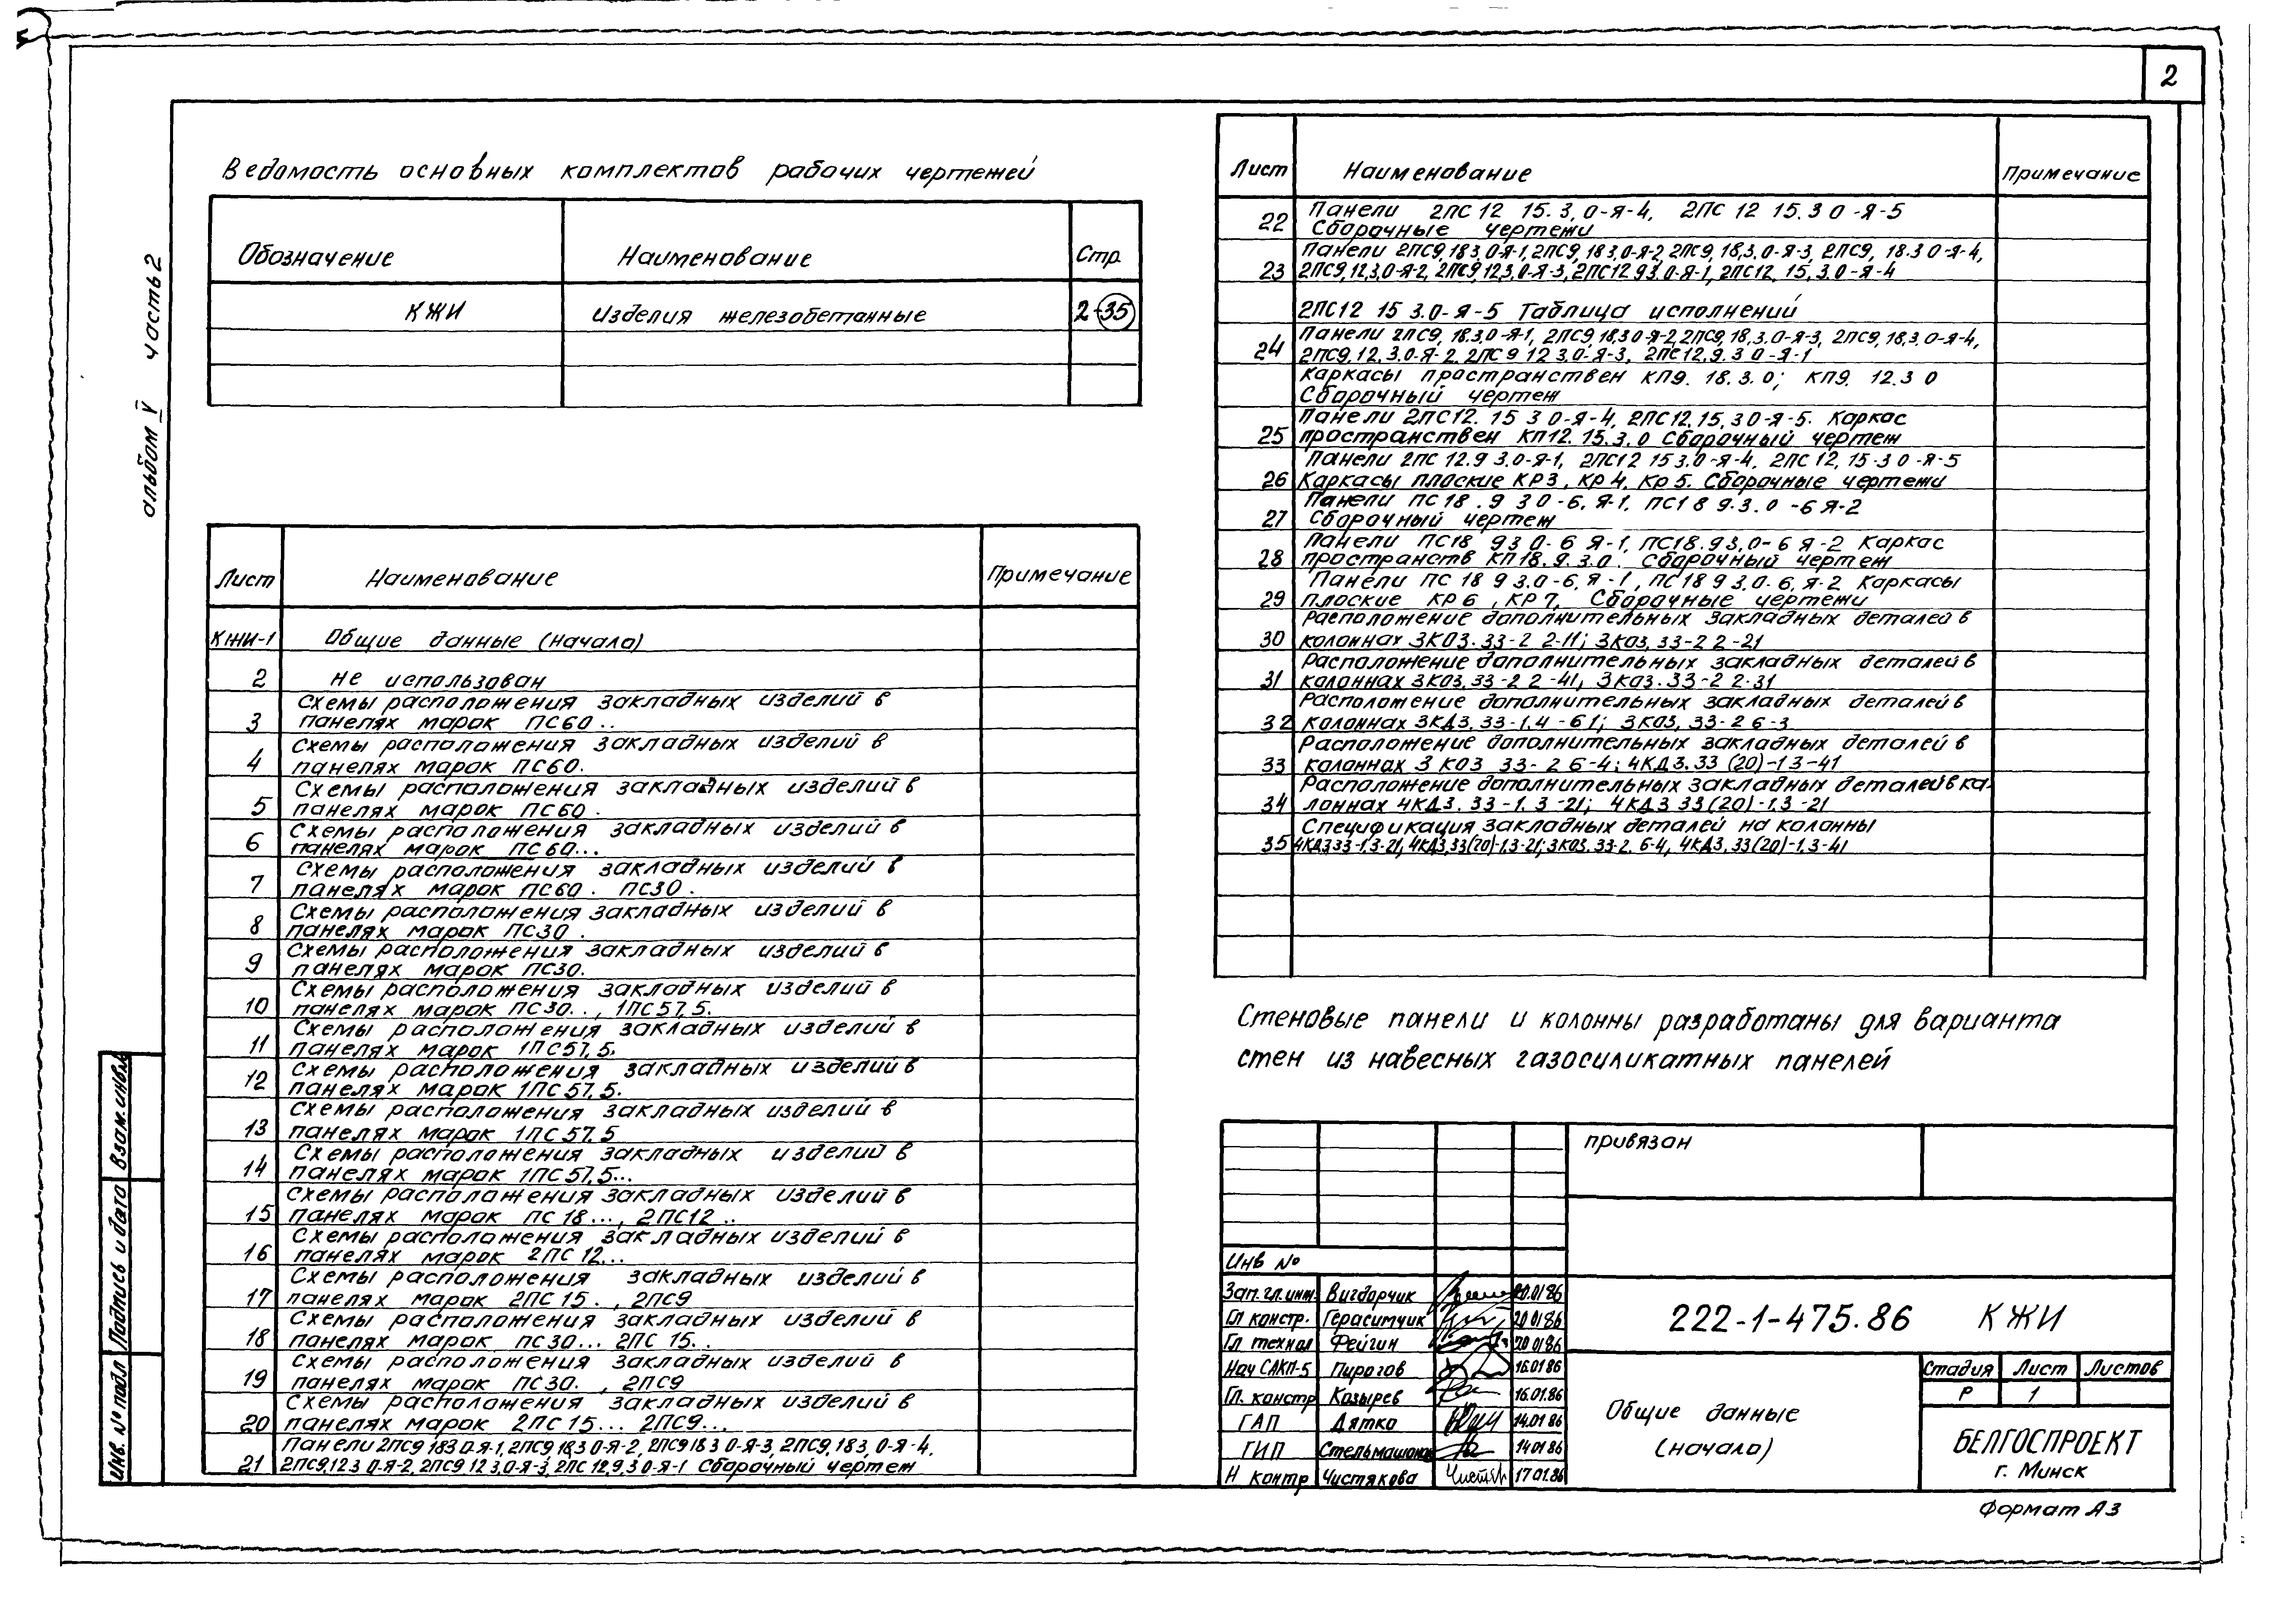 2
альбом V часть 2
Ведомость основных комплектов рабочих чертежей
Обозначение Наименование Стр
КЖИ Изделия железобетонные 2-35
Лист Наименование Примечание
КЖИ-1 Общие данные (начало)
2 Не использован
Схемы расположения закладных изделий в
3 панелях марок ПС60..
Схемы расположения закладных изделий в
4 панелях марок ПС60.
Схемы расположения закладных изделий в
5 панелях марок ПС60 .
Схемы расположения закладных изделий в
6 панелях марок ПС60...
Схемы расположения закладных изделий в
7 панелях марок ПС60 . ПС30 .
Схемы расположения закладных изделий в
8 панелях марок ПС30 .
Схемы расположения закладных изделий в
9 панелях марок ПС30.
Схемы расположения закладных изделий в
10 панелях марок ПС30. . , 1ПС57,5.
Схемы расположения закладных изделий в
11 панелях марок 1ПС57,5.
Схемы расположения закладных изделий в
12 панелях марок 1ПС57,5.
Схемы расположения закладных изделий в
13 панелях марок 1ПС57.5
Схемы расположения закладных изделий в
14 панелях марок 1ПС57,5...
Схемы расположения закладных изделий в
15 панелях марок ПС18..., 2ПС12 ..
Схемы расположения закладных изделий в
16 панелях марок 2ПС12...
Схемы расположения закладных изделий в
17 панелях марок 2ПС15 . , 2ПС9
Схемы расположения закладных изделий в
18 панелях марок ПС30... 2ПС 15. .
Схемы расположения закладных изделий в
19 панелях марок ПС30. , 2ПС9
Схемы расположения закладных изделий в
20 панелях марок 2ПС15... 2ПС9...
Панели 2ПС9 183 0-Я-1, 2ПС9 18 3 0-Я-2, 2ПС9 18 3 0-Я-3, 2ПС9, 18 3, 0-Я-4.
21 2ПС9,12 3 0-Я-2, 2ПС9 12 3,0-Я-3, 2ПС 12,9,3 0-Я-1 Сборочный чертеж
Лист Наименование Примечание
Панели 2ПС 12 15. 3, 0-Я-4, 2ПС 12 15. 3 0 -Я-5
22 Сборочные чертежи
Панели 2ПС9, 18 3, 0-Я-1, 2ПС9, 18 3,0-Я-2, 2ПС9, 18,3.0-Я-3, 2ПС9, 18.3 0-Я-4,
23 2ПС9, 12,3,0-Я-2, 2ПС9, 12,3, 0-Я-3, 2ПС12 9 3. 0-Я-1, 2ПС12, 15, 3.0-Я-4
2ПС12 15 3.0-Я-5 Таблица исполнений
Панели 2ПС9, 18.3.0-Я-1, 2ПС9, 18,3 0-Я-2, 2ПС9, 18,3.0-Я-3, 2ПС9, 18,3, 0-Я-4,
24 2ПС9, 12,3.0-Я-2, 2ПС 9 12 3.0-Я-3, 2ПС12,9,3 0-Я-1
Каркасы пространствен КП9. 18. 3. 0; КП9. 12. 3 0
Сборочный чертеж
Панели 2ПС12. 15 3 0-Я-4, 2ПС12, 15, 3 0-Я-5. Каркас
25 пространствен КП12. 15.3.0 Сборочный чертеж
Панели 2ПС 12.9 3.0-Я-1, 2ПС12 15 3.0-Я-4, 2ПС 12, 15-3 0-Я-5
26 Каркасы плоские КР3, КР4, КР5. Сборочные чертежи
Панели ПС 18 . 9 3 0-6. Я-1, ПС18 9.3. 0 -6 Я-2
27 Сборочный чертеж
Панели ПС18 9 3 0-6 Я-1, ПС18.9 3,0-6 Я-2 Каркас
28 пространств КП18. 9. 3.0. Сборочный чертеж
Панели ПС 18 9 3.0-6, Я-1, ПС18 9 3.0-6, Я-2 Каркасы
29 плоские КР6 , КР7. Сборочные чертежи
Расположение дополнительных закладных деталей в
30 колоннах 3КО3. 33-2 2-11; 3КО3, 33-2 2-21
Расположение дополнительных закладных деталей в
31 колоннах 3КО3, 33-2 2-41, 3КО3. 33-2 2-31
Расположение дополнительных закладных деталей в
32 колоннах 3КД3, 33-1.4-61; 3КО3, 33-2 6-3
Расположение дополнительных закладных деталей в
33 колоннах 3 КО3 33-2 6-4; 4КД3. 33 (20)-1 3-41
Расположение дополнительных закладных деталей в ко-
34 лоннах 4КД3. 33-1. 3-21; 4КД3 33(20)-1.3-21
Спецификация закладных деталей на колонны
35 4КД3 33-1.3-21, 4КД3,33(20)-1.3-21; 3КО3. 33-2. 6-4, 4КД3, 33(20)-1.3-41
Стеновые панели и колонны разработаны для варианта
стен из навесных газосиликатных панелей
привязан
Инв №
Зап. гл. инж. Вигдорчик 20.01 86
Гл констр. Герасимчик 20 01 86
Гл технол Фейгин 20 01 86
Нач САКП-5 Пирогов 16.01 86
Гл. констр Козырев 16.01.86
ГАП Дятко 14.01 86
ГИП Стельмашонок 14 01 86
Н контр Чистякова 17 01.86
222-1-475.86 КЖИ
Общие данные
(начало)
Стадия Лист Листов
Р 1
БЕЛГОСПРОЕКТ
г. Минск
Формат А3
Инв. № подл Подпись и дата Взам. инв. №